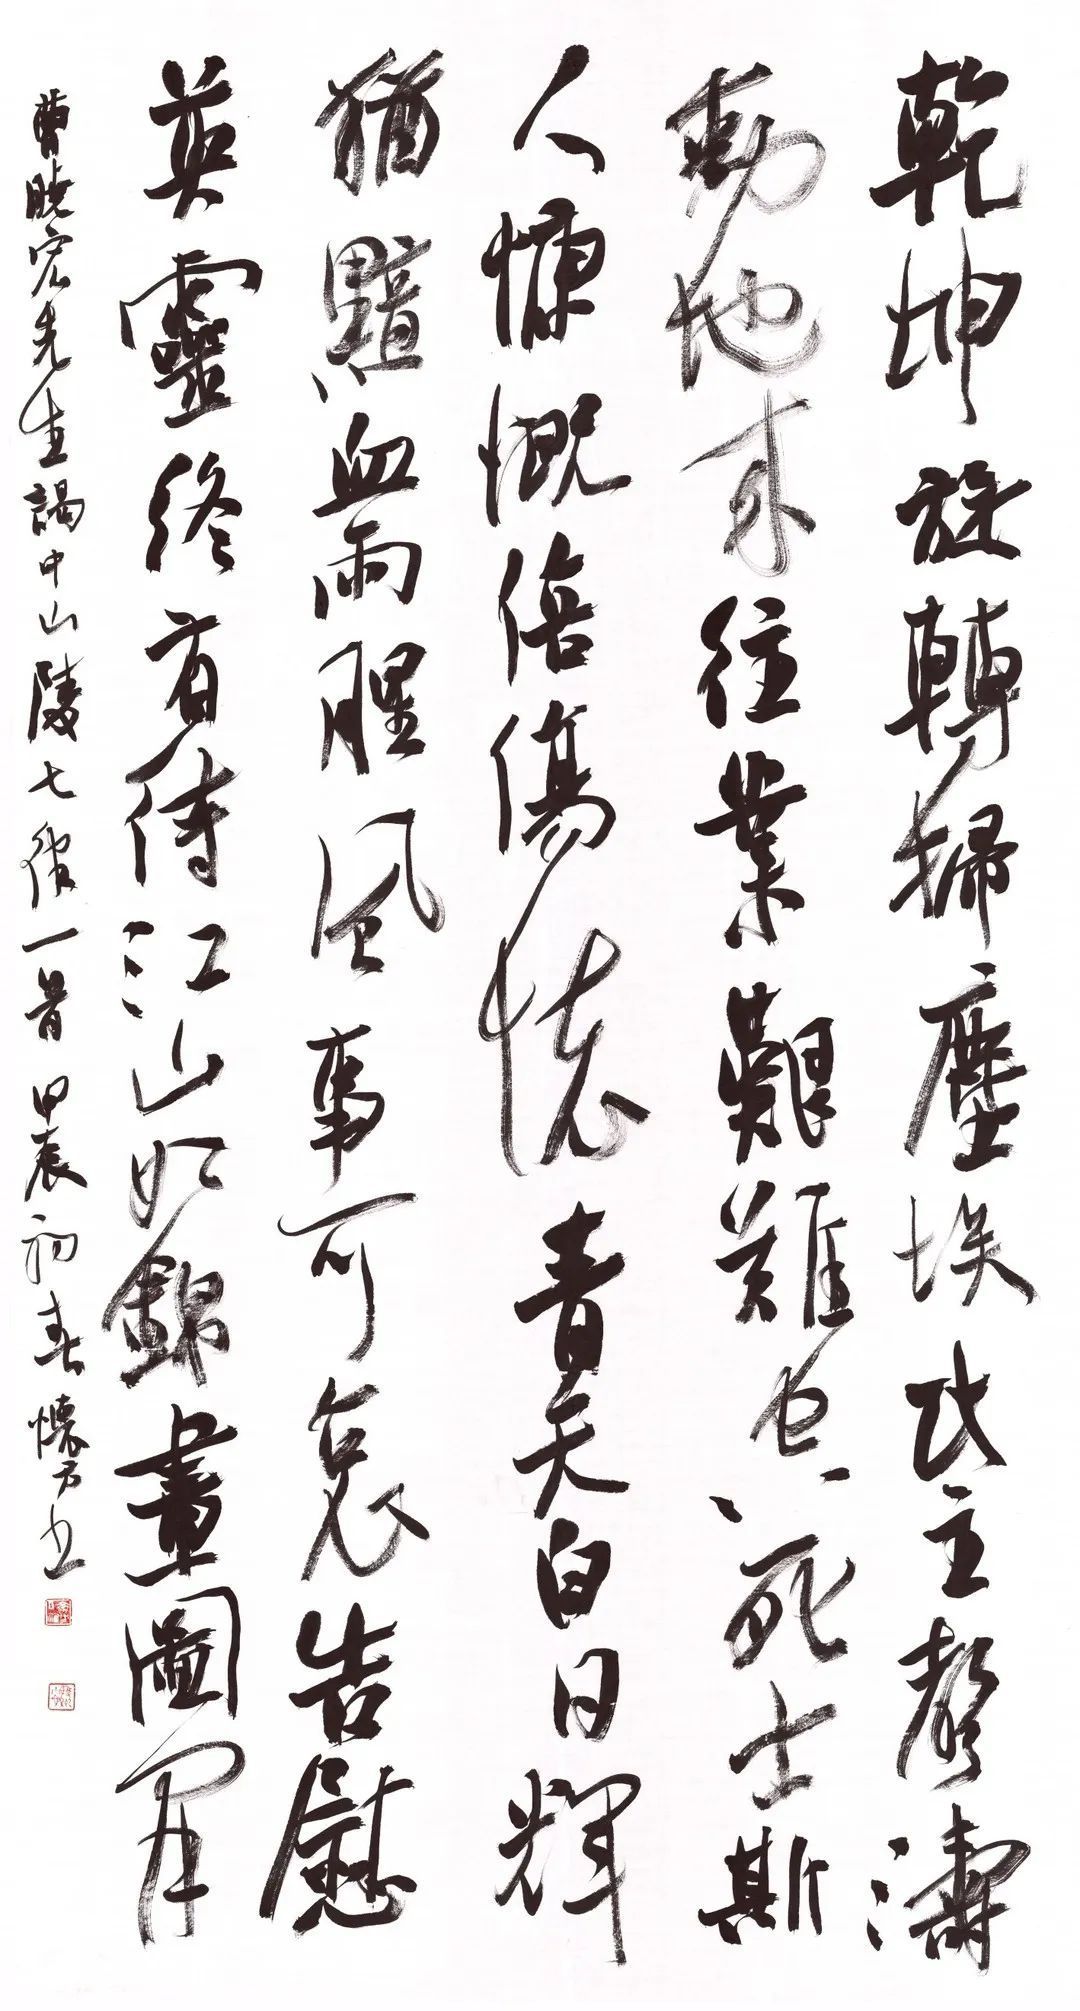 乾坤旋轉掃塵埃民主聲濤
動地來往業艱難死士斯
人慷慨倍傷懷青天白日輝
猶黯血雨腥風事可哀告慰
英靈終有待江山如錦畫圖開
曹曉宏先生謁中山陵七律一首甲辰初春懷方書